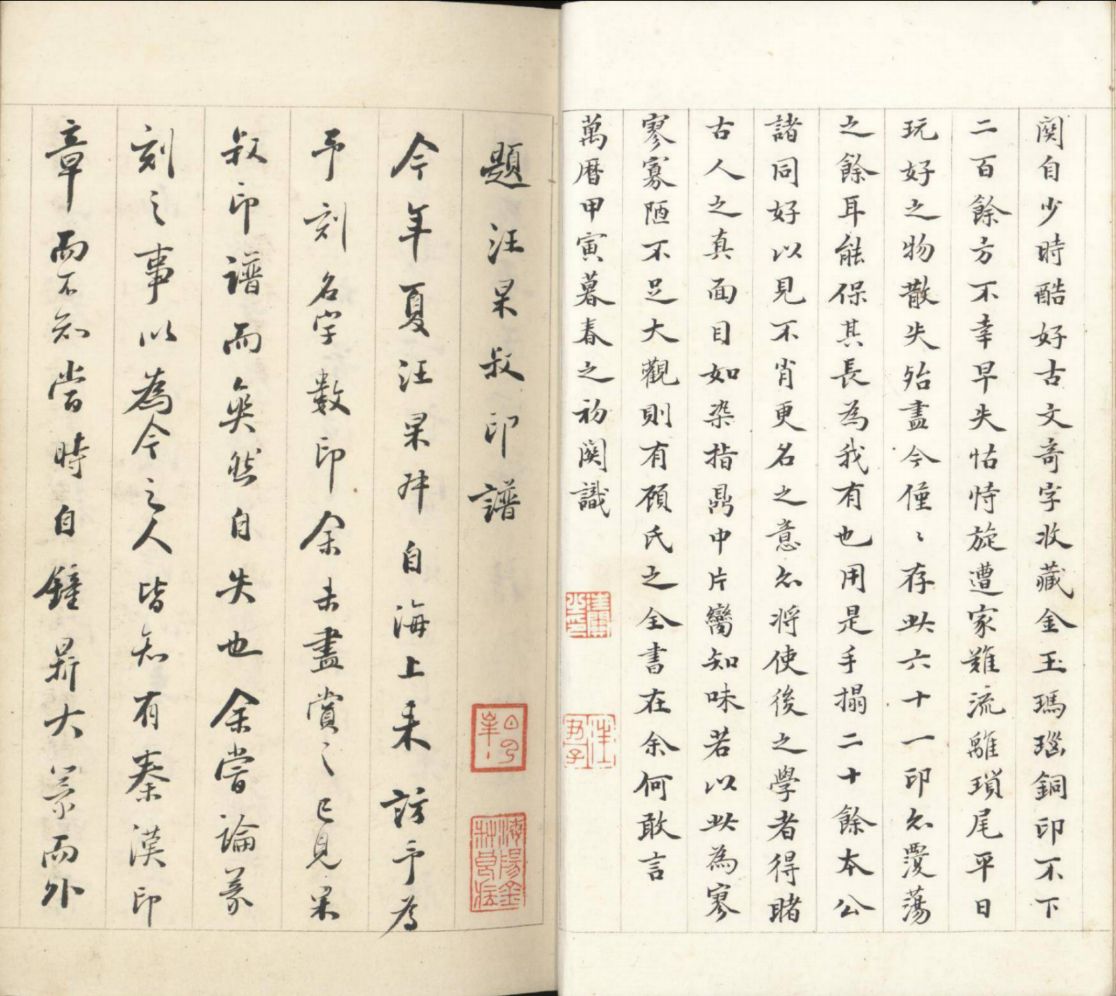 関自少時酷好古文奇字收藏金玉瑪瑙銅印不下
二百餘方不幸早失怙恃旋遭家難流離瑣尾平日
玩好之物散失殆盡今僅〻存此六十一印亦覆蕩
之餘耳能保其長為我有也用是手搨二十餘本公
諸同好以見不肖更名之意亦將使後之學者得睹
古人之真面目如染指鼎中片臠知味若以此為寥
寥寡陋不足大觀則有顧氏之全書在余何敢言
萬曆甲寅暮春之初関識
題汪杲叔印譜
今年夏汪杲叔自海上来訪予為
予刻名字數印余未盡賞之已見杲
叔印譜而爽然自失也余嘗論篆
刻之事以為今之人皆知有秦漢印
章而不知當時自鐘鼎大篆而外